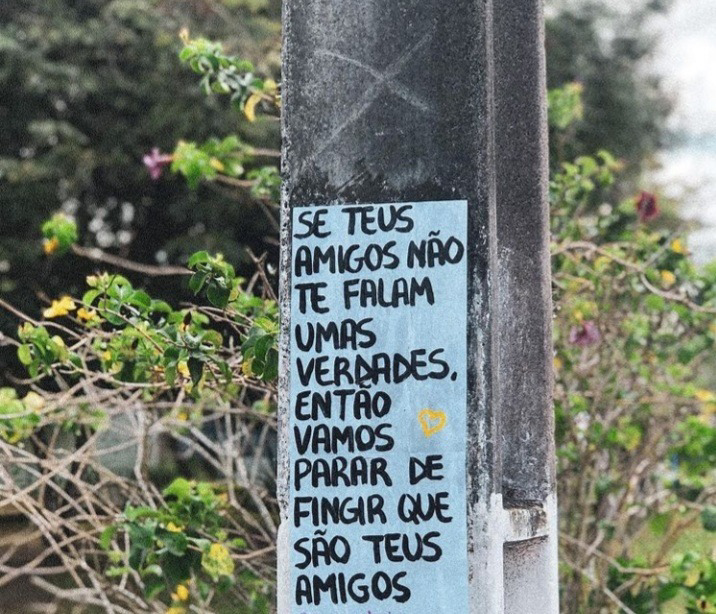 SE TEUS
AMIGOS NÃO
TE FALAM
UMAS
VERDADES,
ENTÃO
VAMOS
PARAR DE
FINGIR QUE
SÃO TEUS
AMIGOS